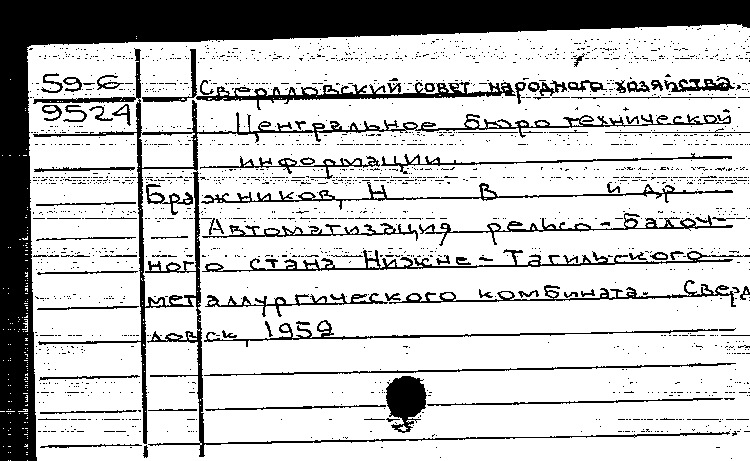 59-6 Свердловский совет народного хозяйства.
9524 Центральное бюро технической
информации.
Бражников, Н В и др.
Автоматизация рельсо-балоч-
ного стана Нижне-Тагильского
металлургического комбината. Сверд
ловск, 1959